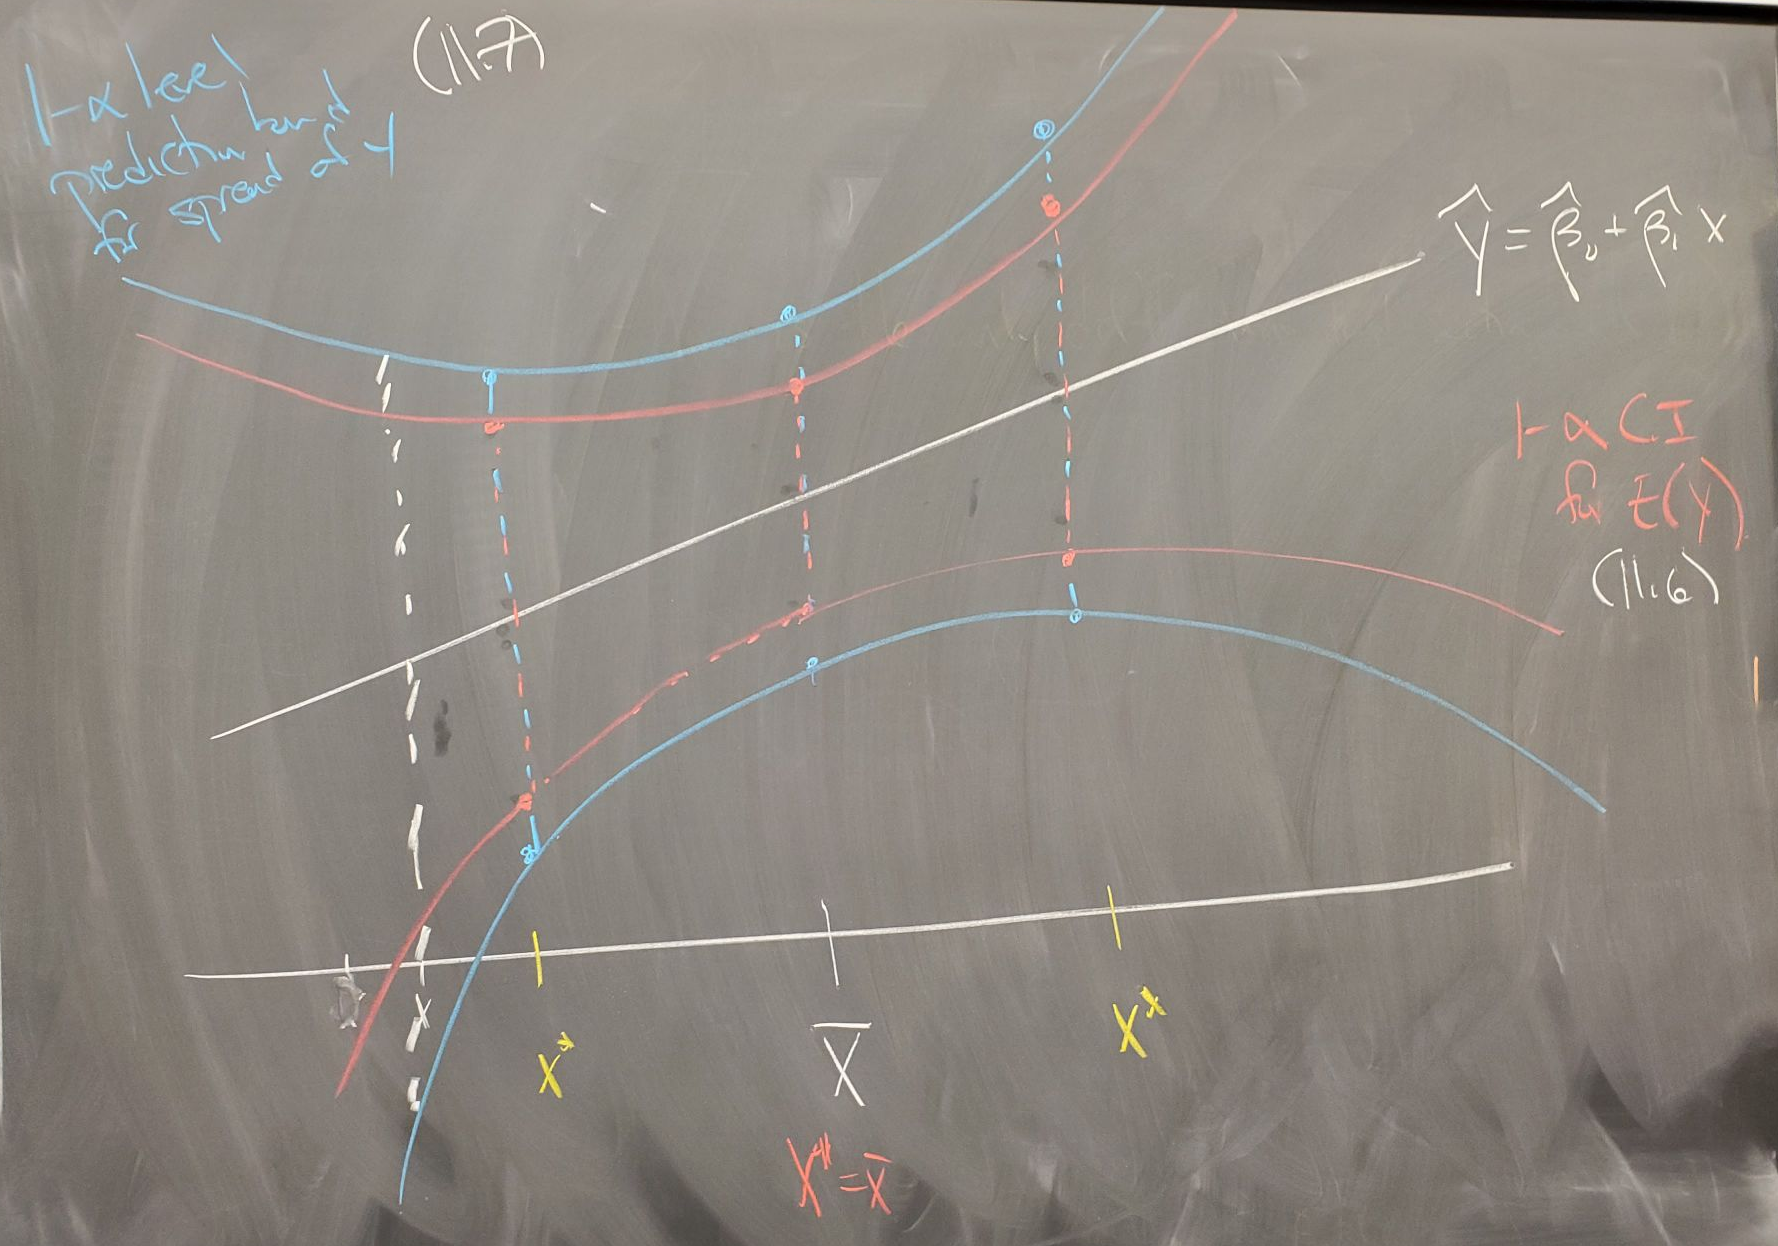 (11.7)
1-α level
prediction band
for spread of Y
Ŷ = β̂₀ + β̂₁ x
1-α CI
for E(Y)
(11.6)
0
x
x*
x̄
x*
x* = x̄